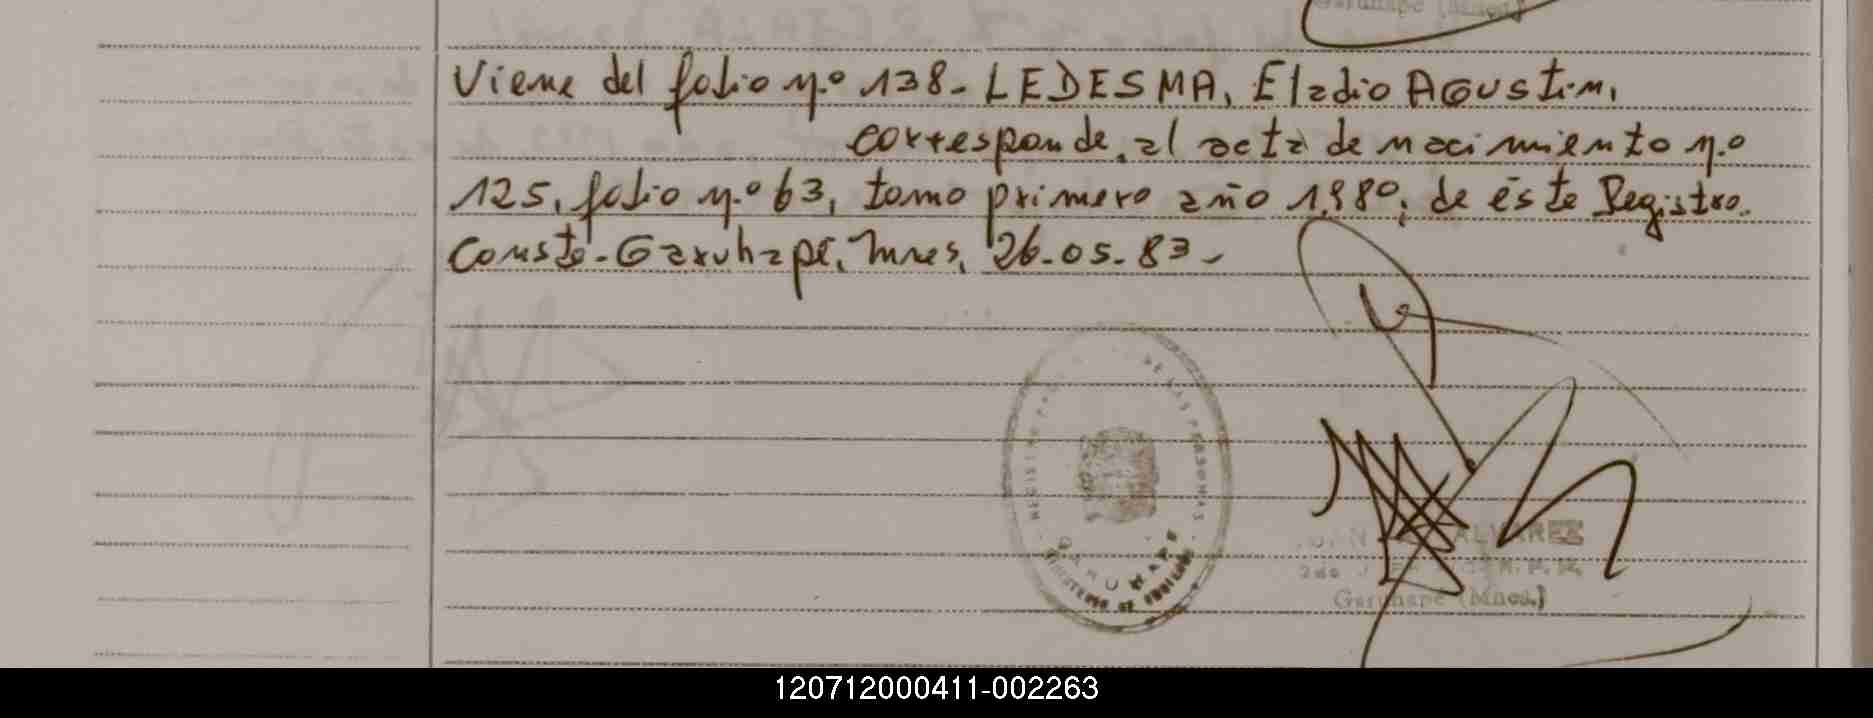 Garuhapé (Mnes.)
Viene del folio n.º 138- LEDESMA, Eladio AGustin,
corresponde, al acta de nacimiento n.º
125, folio n.º 63, tomo primero año 1.980, de éste Registro.
Conste-Garuhapé, Mnes, 26-05-83-
DE LAS PERSONAS
GARUHAPE
MINISTERIO DE GOBIERNO
JUAN ALVAREZ
Garuhapé (Mnes.)
120712000411-002263